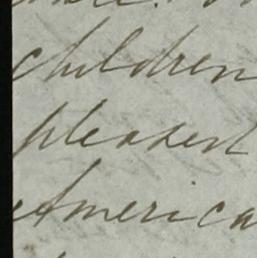 children
pleasent
America